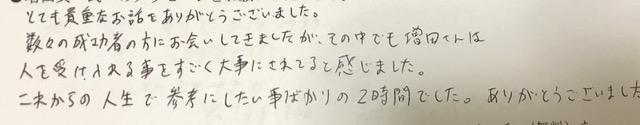 とても貴重なお話をありがとうございました。
数々の成功者の方にお会いしてきましたが、その中でも増田さんは
人を受け入れる事をすごく大事にされてると感じました。
これからの人生で参考にしたい事ばかりの2時間でした。ありがとうございました